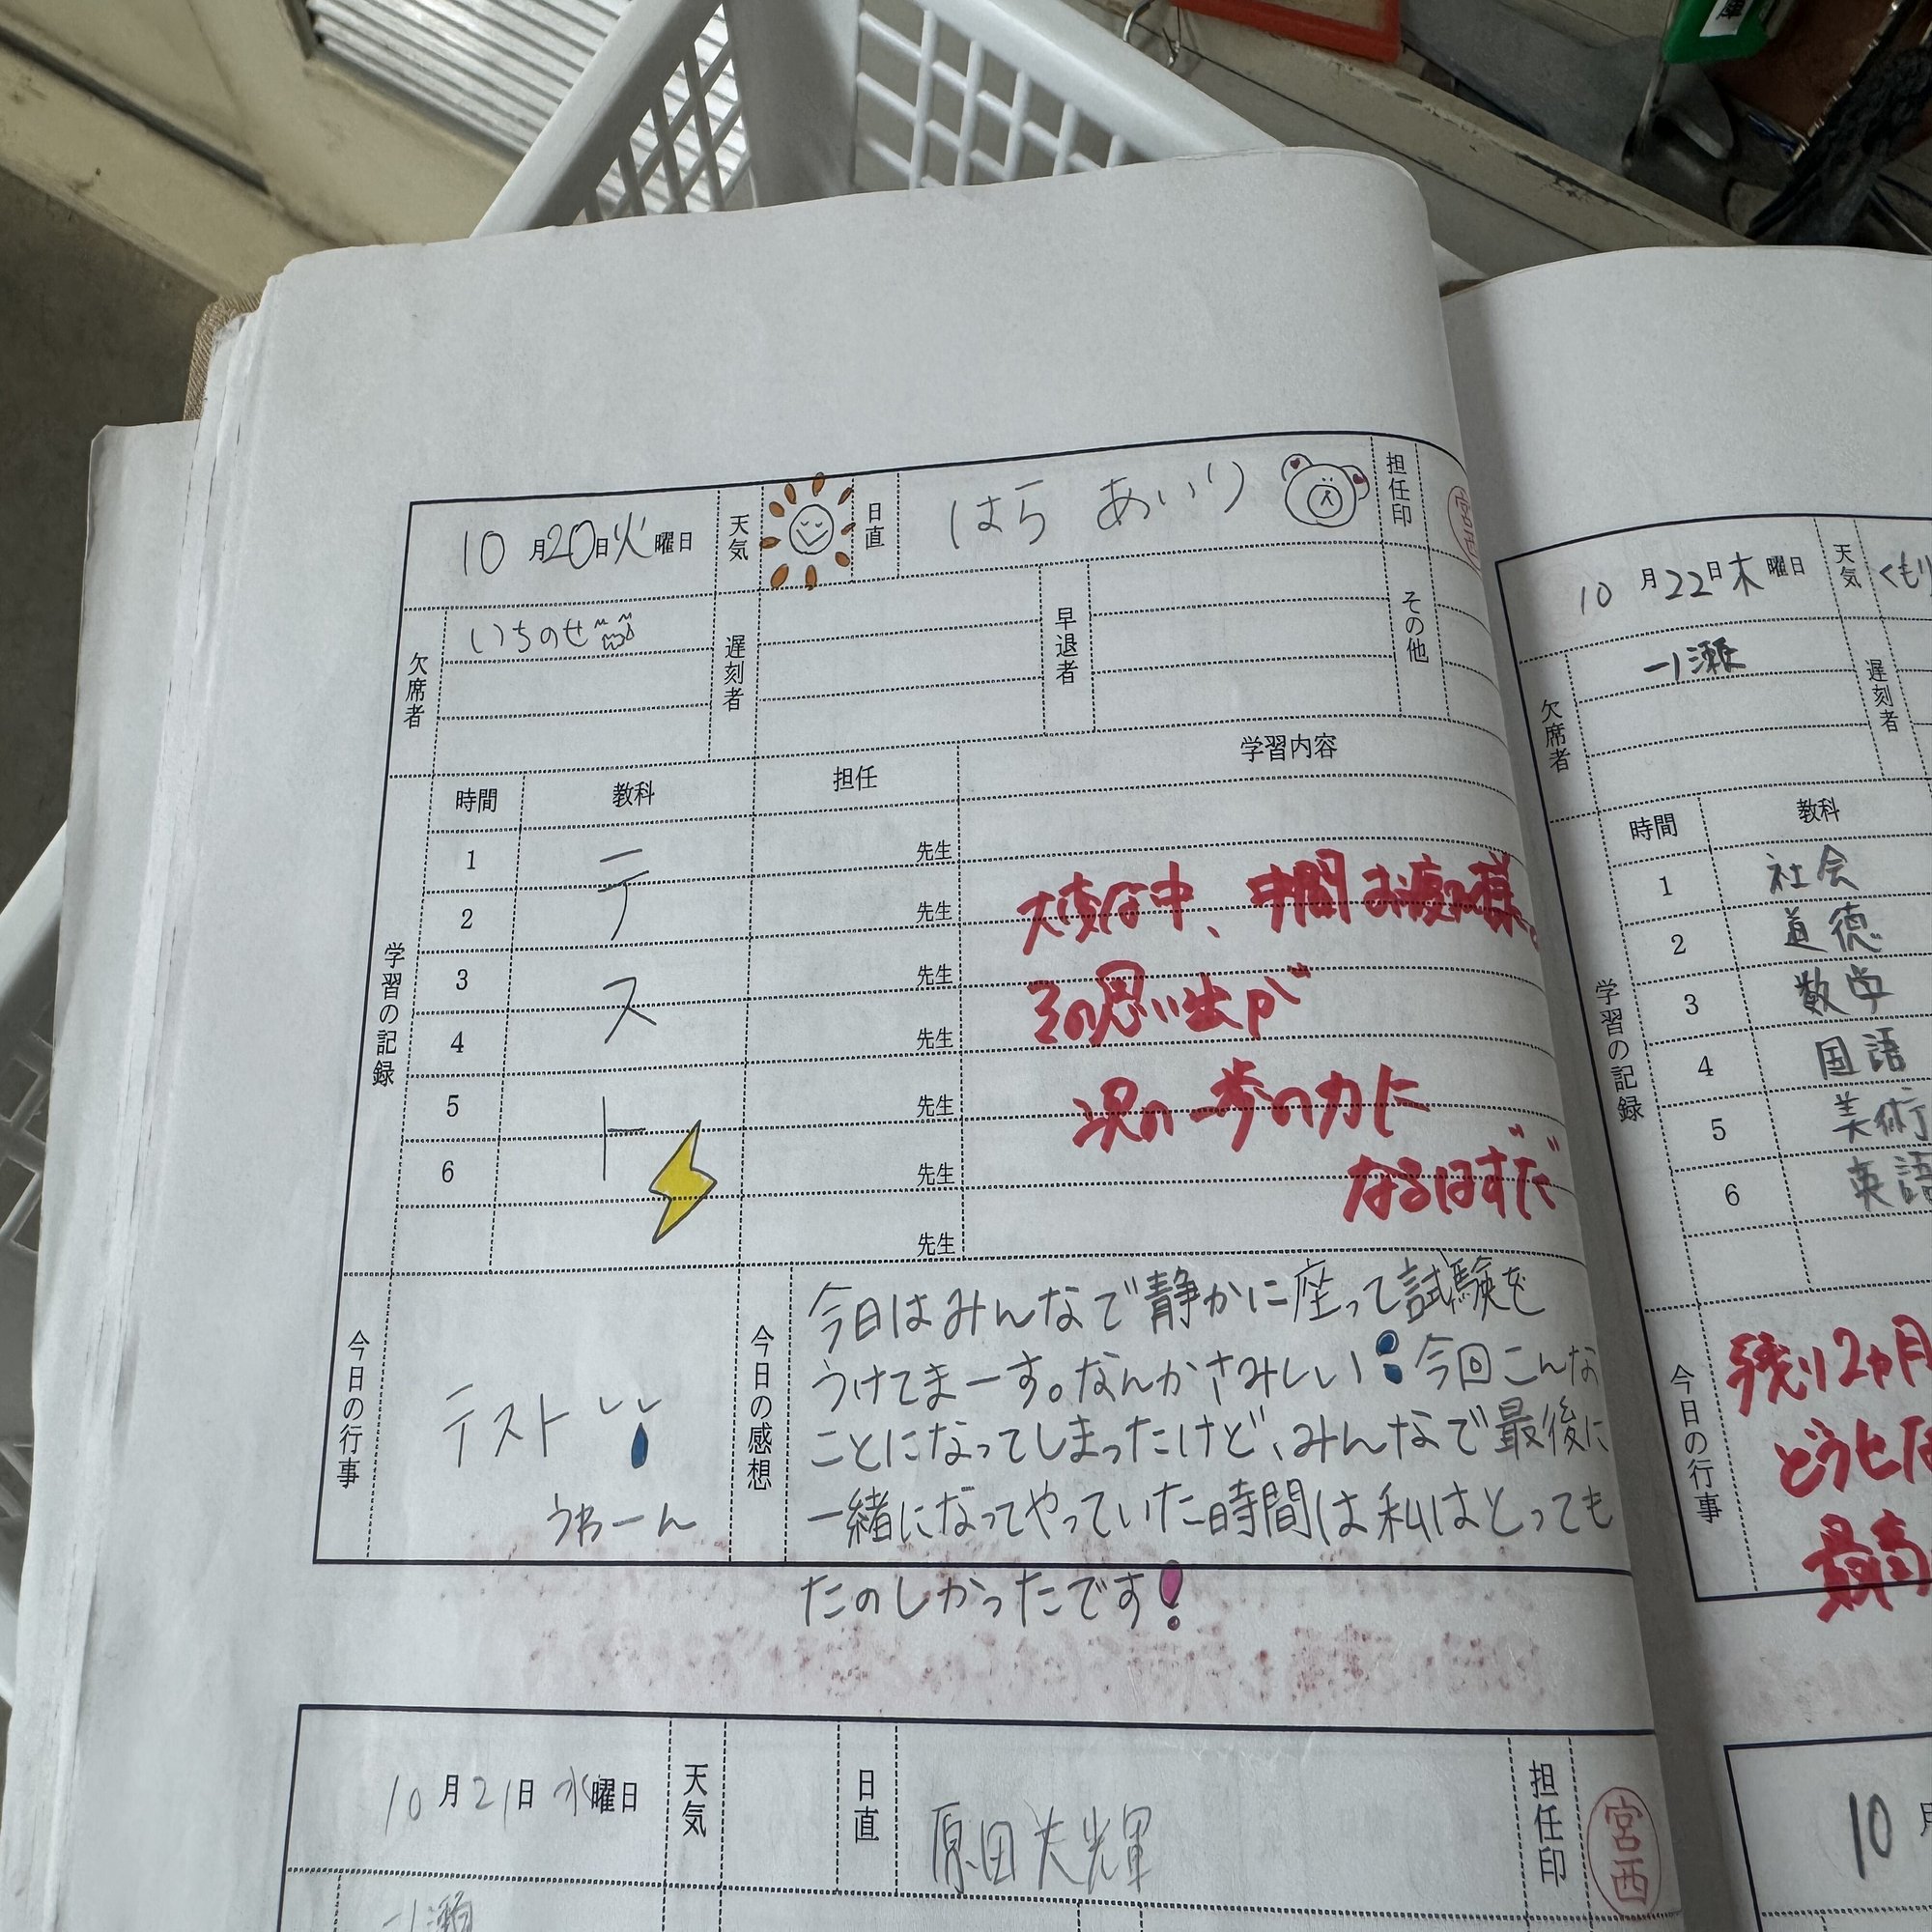 10月20日火曜日 天気 日直 はら あいり 担任印
欠席者 いちのせ 遅刻者 早退者 その他
学習の記録
時間 教科 担任 学習内容
1 先生
2 先生
3 先生
4 先生
5 先生
6 先生
先生
テスト
大変な中、中間お疲れ様。
その思い出が
次の一歩の力に
なるはずだ
今日の行事
テスト
うわーん
今日の感想
今日はみんなで静かに座って試験を
うけてまーす。なんかさみしい 今回こんな
ことになってしまったけど、みんなで最後に
一緒になってやっていた時間は私はとっても
たのしかったです!
10月21日水曜日 天気 日直 原田大輝 担任印 宮西
一ノ瀬
10月22日木曜日 天気 くもり
欠席者 一ノ瀬 遅刻者
学習の記録
時間 教科
1 社会
2 道徳
3 数学
4 国語
5 美術
6 英語
今日の行事
残り2ヵ月
どう
最高
10月